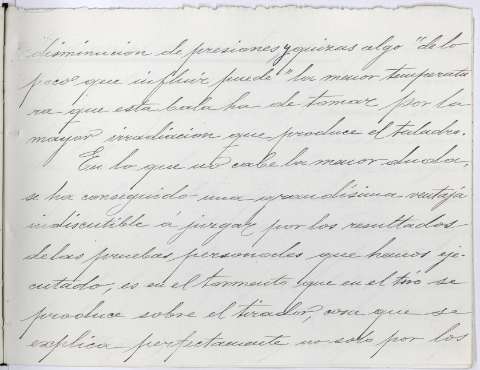 disminucion de presiones, y quizas algo "de lo
poco que influir puede" la menor temperatu
ra que esta bala ha de tomar por la
mayor irradiacion que produce el taladro.
En lo que no cabe la menor duda,
se ha conseguido una grandisima ventaja
indiscutible á juzgar por los resultados
de las pruebas personales que hemos eje-
cutado, es en el tormento que en el tiro se
produce sobre el tirador, cosa que se
explica perfectamente no solo por los